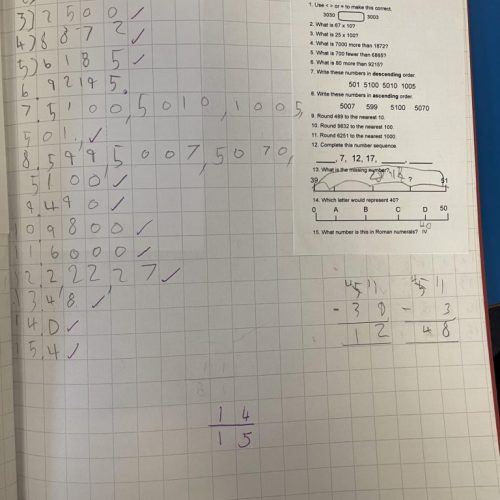 3) 2500 ✓
4) 8872 ✓
5) 6185 ✓
6. 92195.
7. 5100, 5010, 1005,
501, ✓
8. 599 5007, 5070,
5100 ✓
9. 490 ✓
10 9800 ✓
11. 6000 ✓
12. 2, 22, 27 ✓
13. 48 ✓
14. D ✓
15. 4 ✓
14
15
1. Use < > or = to make this correct.
3030 3003
2. What is 67 x 10?
3. What is 25 x 100?
4. What is 7000 more than 1872?
5. What is 700 fewer than 6885?
6. What is 80 more than 9215?
7. Write these numbers in descending order.
501 5100 5010 1005
8. Write these numbers in ascending order.
5007 599 5100 5070
9. Round 489 to the nearest 10.
10. Round 9832 to the nearest 100.
11. Round 6251 to the nearest 1000.
12. Complete this number sequence.
____, 7, 12, 17, ____, ____
13. What is the missing number?
39 ? 51
14. Which letter would represent 40?
0 A B C D 50
40
15. What number is this in Roman numerals? IV
- 3
12 48